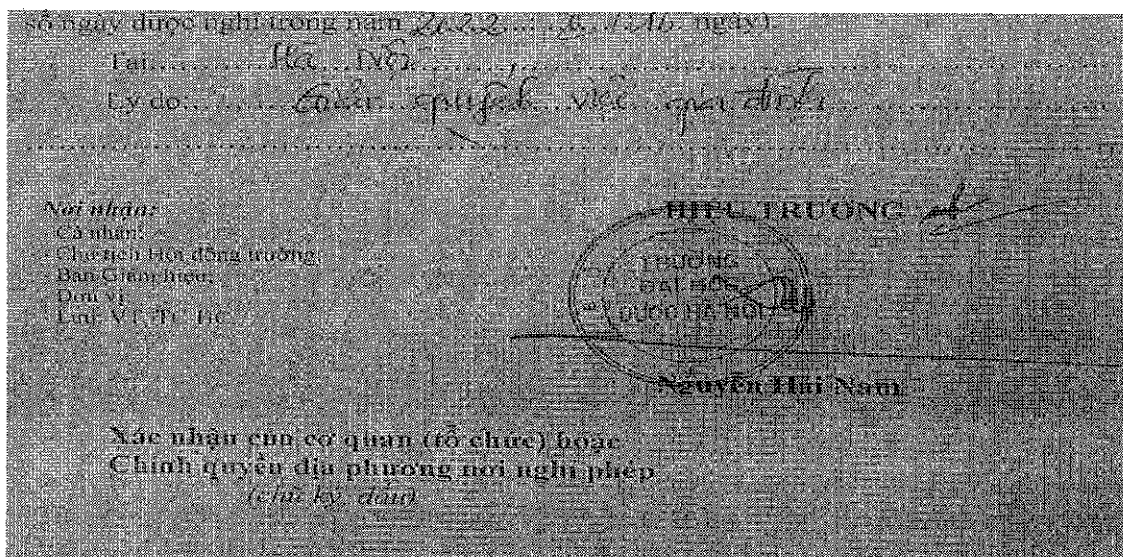 số ngày được nghỉ trong năm 2022 ... 8 / 16 ngày)
Tại: Hà Nội
Lý do: Giải quyết việc gia đình
Nơi nhận:
- Cá nhân;
- Chủ tịch Hội đồng trường;
- Ban Giám hiệu;
- Đơn vị;
- Lưu: VT, TCHC.
HIỆU TRƯỞNG
TRƯỜNG
ĐẠI HỌC
DƯỢC HÀ NỘI
Nguyễn Hải Nam
Xác nhận của cơ quan (tổ chức) hoặc
Chính quyền địa phương nơi nghỉ phép
(chữ ký, dấu)